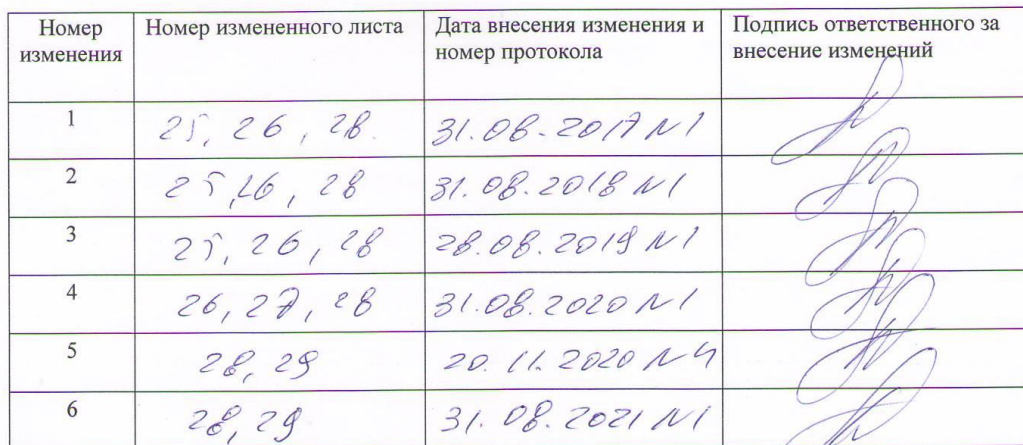 Номер изменения Номер измененного листа Дата внесения изменения и номер протокола Подпись ответственного за внесение изменений
1 25, 26, 28. 31.08.2017 №1
2 25, 26, 28 31.08.2018 №1
3 25, 26, 28 28.08.2019 №1
4 26, 27, 28 31.08.2020 №1
5 28, 29 20.11.2020 №4
6 28, 29 31.08.2021 №1